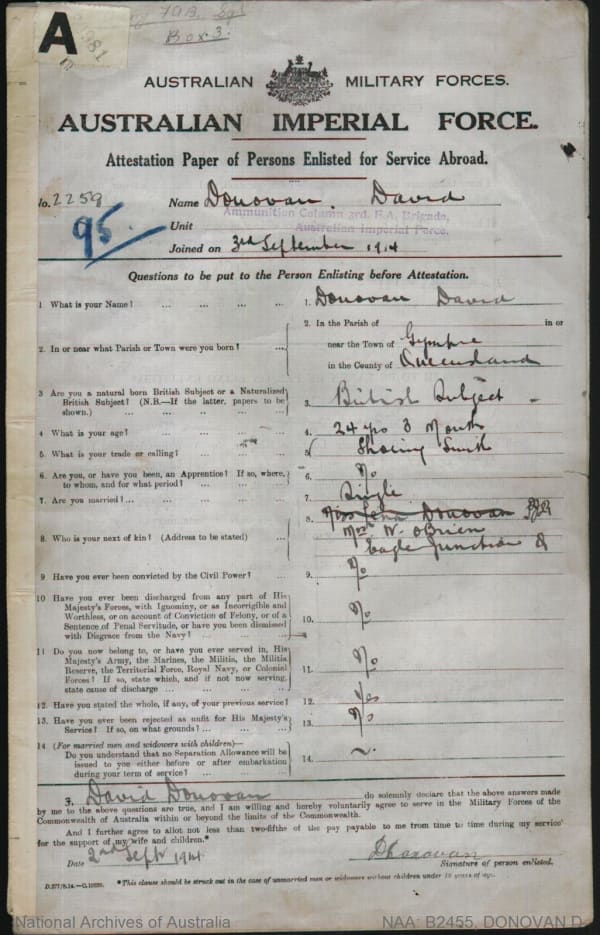 A
Box 3.
AUSTRALIAN MILITARY FORCES.
AUSTRALIAN IMPERIAL FORCE.
Attestation Paper of Persons Enlisted for Service Abroad.
No. 2259 Name Donovan. David
95. Unit Ammunition Column 3rd. F.A. Brigade,
Australian Imperial Force.
Joined on 3rd September 1914
Questions to be put to the Person Enlisting before Attestation.
1 What is your Name? ... ... ... ... 1. Donovan David
2. In or near what Parish or Town were you born? ... 2. In the Parish of in or
near the Town of Gympie
in the County of Queensland
3 Are you a natural born British Subject or a Naturalized
British Subject? (N.B.—If the latter, papers to be
shown.) ... ... ... ... 3. British Subject
4 What is your age? ... ... ... 4. 24 yrs 3 Month
5. What is your trade or calling? ... ... 5 Shoeing Smith
6. Are you, or have you been, an Apprentice? If so, where,
to whom, and for what period? ... ... ... 6. No
7. Are you married? ... ... ... ... 7. Single
8. Who is your next of kin? (Address to be stated) ... 8. Miss Lena Donovan
Mrs W. O'Brien
Eagle Junction Q
9 Have you ever been convicted by the Civil Power? ... 9. No
10 Have you ever been discharged from any part of His
Majesty's Forces, with Ignominy, or as Incorrigible and
Worthless, or on account of Conviction of Felony, or of a
Sentence of Penal Servitude, or have you been dismissed
with Disgrace from the Navy? ... ... ... 10. No
11 Do you now belong to, or have you ever served in, His
Majesty's Army, the Marines, the Militia, the Militia
Reserve, the Territorial Force, Royal Navy, or Colonial
Forces? If so, state which, and if not now serving,
state cause of discharge ... ... ... ... 11. No
12. Have you stated the whole, if any, of your previous service? 12. Yes
13. Have you ever been rejected as unfit for His Majesty's
Service? If so, on what grounds? ... ... ... 13. No
14 (For married men and widowers with children)—
Do you understand that no Separation Allowance will be
issued to you either before or after embarkation
during your term of service? ... ... ... 14. ~.
I, David Donovan do solemnly declare that the above answers made
by me to the above questions are true, and I am willing and hereby voluntarily agree to serve in the Military Forces of the
Commonwealth of Australia within or beyond the limits of the Commonwealth.
And I further agree to allot not less than two-fifths of the pay payable to me from time to time during my service
for the support of my wife and children.*
Date 2nd Sept 1914. D Donovan
Signature of person enlisted.
D.277/8.14.—C.10835.
*This clause should be struck out in the case of unmarried men or widowers without children under 18 years of age.
National Archives of Australia NAA: B2455, DONOVAN D